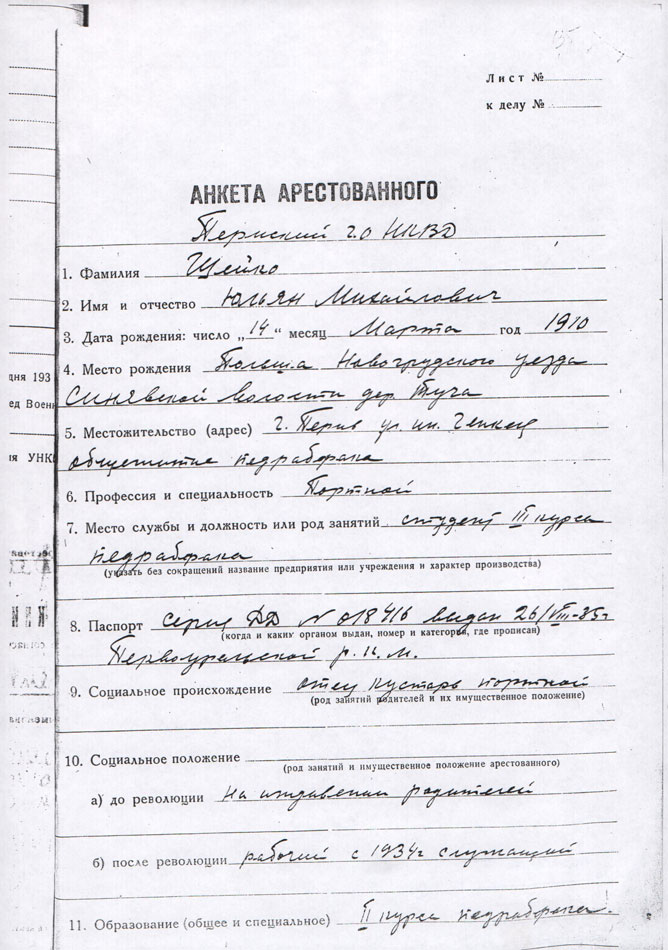 Лист №
к делу №
АНКЕТА АРЕСТОВАННОГО
Пермский г.о НКВД
1. Фамилия Щейко
2. Имя и отчество Юльян Михайлович
3. Дата рождения: число „14“ месяц Марта год 1910
4. Место рождения Польша Новогрудского уезда
Синявской волости дер. Туча
5. Местожительство (адрес) г. Пермь ул. им.
общежитие педрабфака
6. Профессия и специальность Портной
7. Место службы и должность или род занятий студент III курса
педрабфака
(указать без сокращений название предприятия или учреждения и характер производства)
8. Паспорт серия ДД N 018416 выдан 26/VIII-35г
(когда и каким органом выдан, номер и категория, где прописан)
Первоуральской р.к.м.
9. Социальное происхождение отец кустарь портной
(род занятий родителей и их имущественное положение)
10. Социальное положение
(род занятий и имущественное положение арестованного)
а) до революции на иждивении родителей
б) после революции рабочий с 1934г служащий
11. Образование (общее и специальное) II курса педрабфака.
дня 193
ед Воен
ия УНК